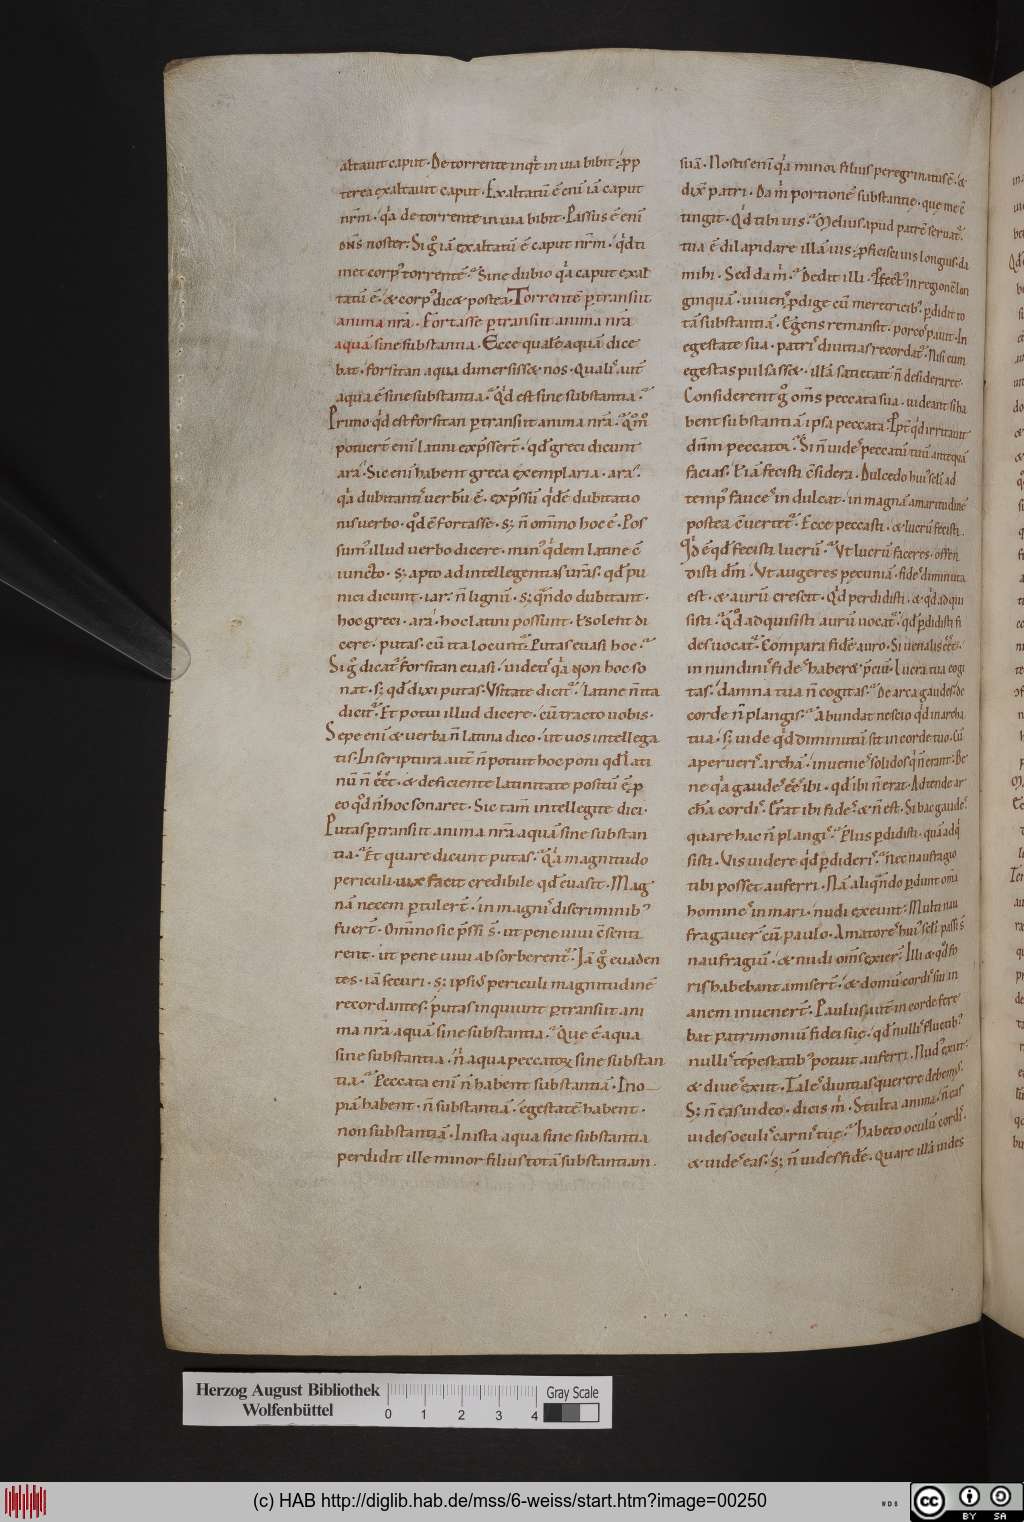 altauit caput. De torrente inqͥt in uia bibit. ꝓp
terea exaltauit caput. Exaltatū ē enī iā caput
nr̄m. qͥa de torrente in uia bibit. Passus ē enī
dn̄s noster. Si gͦ iā exaltatū ē caput nr̄m. qͥd ti
met corpꝰ torrentē. Sine dubio qͥa caput exal
tatū ē. & corpꝰ dicat postea. Torrentē ꝑtransiit
anima nr̄a. Fortasse ꝑtransiit anima nr̄a
aquā sine substantia. Ecce qualē aquā dice
bat. forsitan aqua dimersisset nos. Qualis aut̄
aqua ē sine substantia. Qͥd est sine substantia.
Primo qͥd est forsitan ꝑtransiit anima nr̄a. Qͦm̄
potuer̄t enī latini exp̄sser̄t. qd̄ greci dicunt
ara. Sic enī habent greca exemplaria. ara.
qͥa dubitantis uerbū ē. exp̄ssū qͥdē dubitatio
nis uerbo. qd̄ ē fortasse. sꝫ n̄ om̄ino hoc ē. Pos
sumꝰ illud uerbo dicere. minꝰ qͥdem latine ē
iuncto. sꝫ apto ad intellegentias ur̄as. qd̄ pu
nici dicunt. iar. n̄ lignū. sꝫ qn̄do dubitant.
hoc greci. ara. hoc latini possunt. ł solent di
cere. putas. cū ita locunt̄. Putas euasi hoc.
Si gͦ dicat̄ forsitan euasi. uidetis qͥa non hoc so
nat. sꝫ qd̄ dixi putas. Usitate dicit̄. latine n̄ ita
dicit̄. Et potui illud dicere. cū tracto uobis.
Sepe enī & uerba n̄ latina dico. ut uos intellega
tis. In scriptura aut̄ n̄ potuit hoc poni qd̄ lati
nū n̄ eēt. & deficiente latinitate positū ē. ꝓ
eo qd̄ n̄ hoc sonaret. Sic tam̄ intellegite dici.
Putas ꝑtransiit anima nr̄a aquā sine substan
tia. Et quare dicunt putas. Qͥa magnitudo
periculi uix facit credibile qd̄ euasit. Mag
nā necem ꝑtuler̄t. in magnis discriminibꝰ
fuer̄t. Om̄ino sic p̄ssi s̄. ut pene uiui c̄senti
rent. ut pene uiui absorberent̄. Jā gͦ euaden
tes. iā securi. sꝫ ipsiꝰ periculi magnitudinē
recordantes. putas inquiunt ꝑtransiit ani
ma nr̄a aquā sine substantia. Que ē aqua
sine substantia. n̄ aqua peccatoꝝ sine substan
tia. Peccata enī n̄ habent substantiā. Ino
piā habent. n̄ substantiā. egestatē habent.
non substantiā. In ista aqua sine substantia
perdidit ille minor filius totā substantiam.
suā. Nostis enī qͥa minor filius peregrinatus ē. &
dix̄ patri. Da m̄ portionē substantię. que me c̄
tingit. Qͥd tibi uis. Melius apud patrē seruat̄.
tua ē dilapidare illā uis. ꝓficisci uis longius. da
mihi. Sed da m̄. Dedit illi. Ꝓfect̄ꝰ in regionē lon
ginquā. uiuens ꝓdige cū meretricibꝰ ꝑdidit to
tā substantiā. Egens remansit. porcos pauit. In
egestate sua. patris diuitias recordatꝰ. Nisi eum
egestas pulsasset. illā satietatē n̄ desideraret.
Considerent gͦ om̄s peccata sua. uideant si ha
bent substantiā ipsa peccata. Ppt̄ qd̄ irritauit
dn̄m peccator. Si n̄ uides peccatū tuū antequā
facias. ł iā fecisti c̄sidera. Dulcedo huiꝰ scl̄i ad
tempꝰ fauces indulcat. in magnā amaritudinē
postea c̄uertet̄. Ecce peccasti. & lucrū fecisti.
Qͥd ē qd̄ fecisti lucrū. Ut lucrū faceres. offen
disti dm̄. Ut augeres pecuniā. fides diminuta
est. & aurū crescit. Qͥd perdidisti. & qͥd adqui
sisti. Qd̄ adquisisti aurū uocat̄. qd̄ ꝑdidisti fi
des uocat̄. Compara fidē auro. Si uenalis eēt.
in nundinis fides haberet p̄ciū. Lucra tua cogi
tas. damna tua n̄ cogitas. De arca gaudes. de
corde n̄ plangis. Abundat nescio qͥd in archa
tua. sꝫ uide qͥd diminutū sit in corde tuo. Cū
aperueris archā. inuenies solidos q n̄ erant. Be
ne qͥa gaudes eē ibi. qd̄ ibi n̄ erat. Adtende ar
chā cordis. Erat ibi fides. & n̄ est. Si hac gaudes.
quare hac n̄ plangis. Plus ꝑdidisti. quā adqͥ
sisti. Uis uidere qͥd ꝑdideris. Nec naufragio
tibi posset auferri. Nā aliqn̄do ꝑdunt om̄ia
homines in mari. nudi exeunt. Multi nau
fragauer̄ cū paulo. Amatores huiꝰ scl̄i passi s̄
naufragiū. & nudi om̄s exier̄. Illi & qd̄ fo
ris habebant amiser̄t. & domū cordis sui in
anem inuener̄t. Paulus aut̄ in corde fere
bat patrimoniū fidei suę. qd̄ nullis fluctibꝰ
nullis tēpestatibꝰ potuit auferri. Nudꝰ exiit.
& diues exiit. Tales diuitias querere debemꝰ.
Sꝫ n̄ eas uideo. dicis m̄. Stulta anima. n̄ eas
uides oculis carnis tuę. Habeto oculū cordis.
& uides eas. sꝫ n̄ uides fidē. Quare illā uides
Herzog August Bibliothek
Wolfenbüttel
0 1 2 3 4
Gray Scale
(c) HAB http://diglib.hab.de/mss/6-weiss/start.htm?image=00250
WDB
cc
BY SA